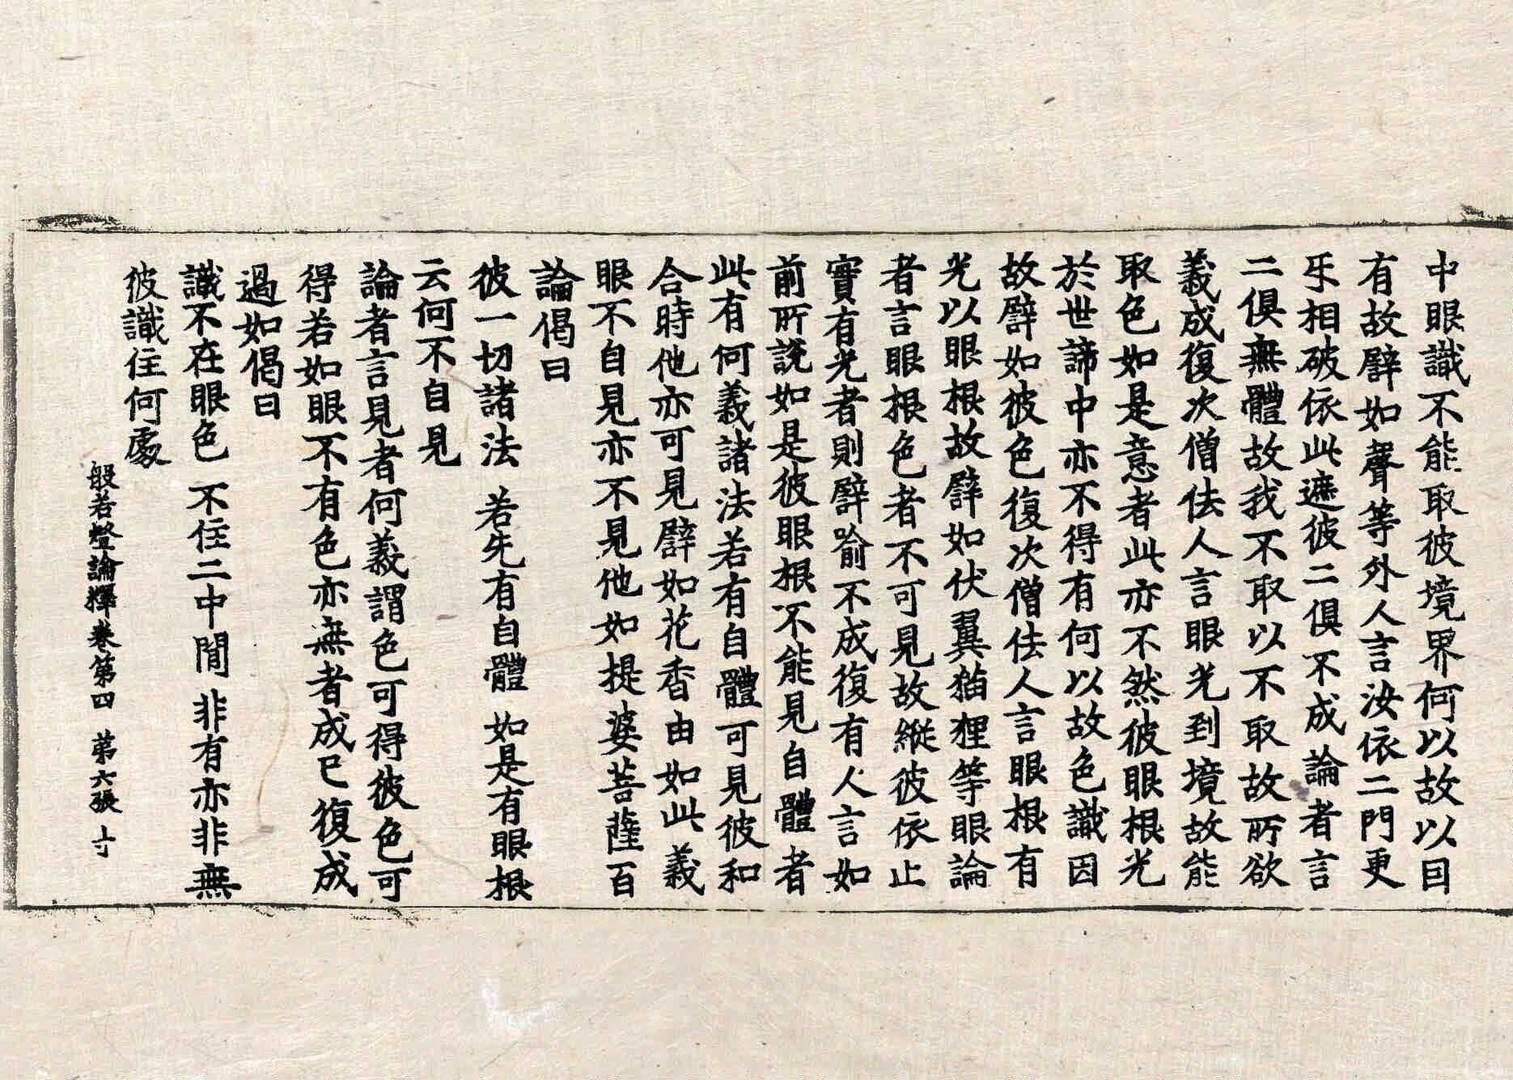 中眼識不能取彼境界何以故以因
有故譬如聲等外人言汝依二門更
乐相破依此遮彼二俱不成論者言
二俱無體故我不取以不取故所欲
義成復次僧佉人言眼光到境故能
取色如是意者此亦不然彼眼根光
於世諦中亦不得有何以故色識因
故譬如彼色復次僧佉人言眼根有
光以眼根故譬如伏翼猫狸等眼論
者言眼根色者不可見故縱彼依止
實有光者則譬喻不成復有人言如
前所說如是彼眼根不能見自體者
此有何義諸法若有自體可見彼和
合時他亦可見譬如花香由如此義
眼不自見亦不見他如提婆菩薩百
論偈曰
彼一切諸法 若先有自體 如是有眼根
云何不自見
論者言見者何義謂色可得彼色可
得若如眼不有色亦無者成已復成
過如偈曰
識不在眼色 不住二中間 非有亦非無
彼識住何處
般若燈論釋卷第四 第六張 寸